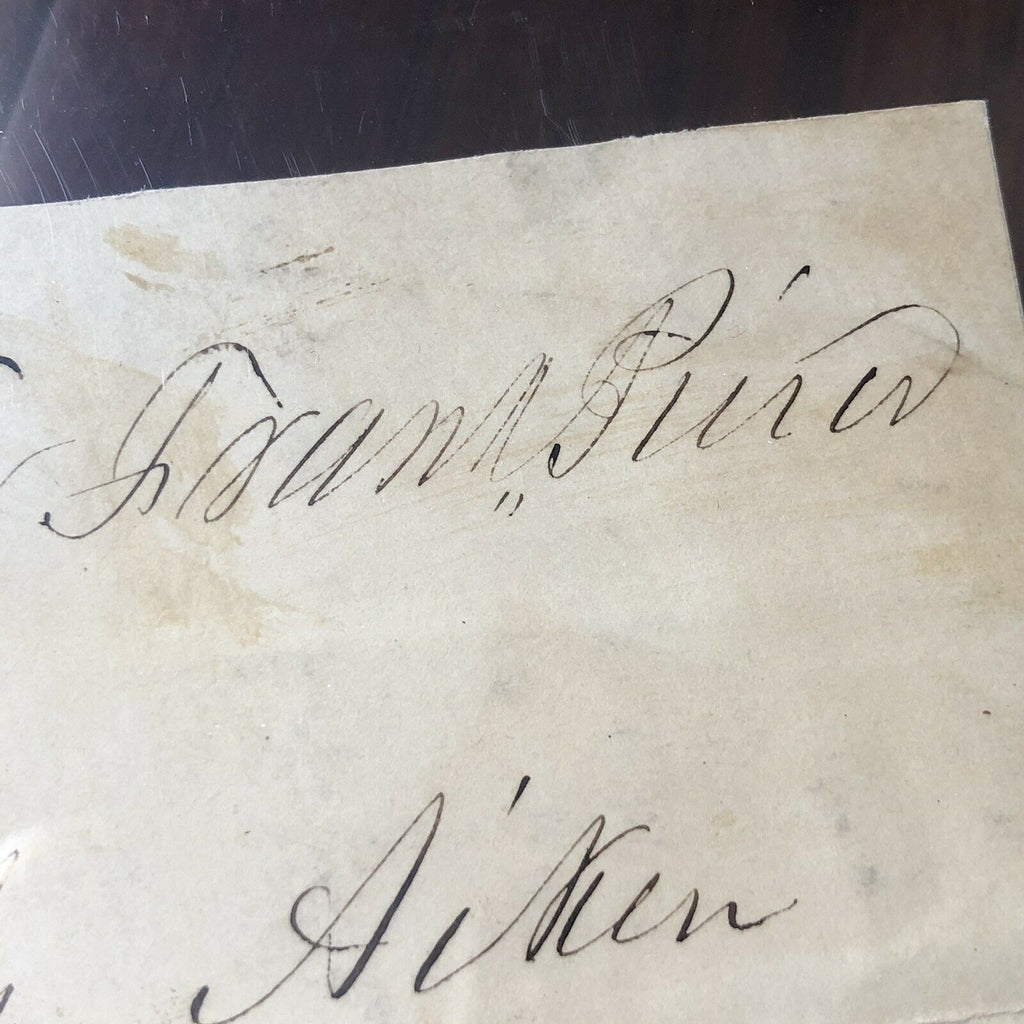 Frank Pierce
Aiken